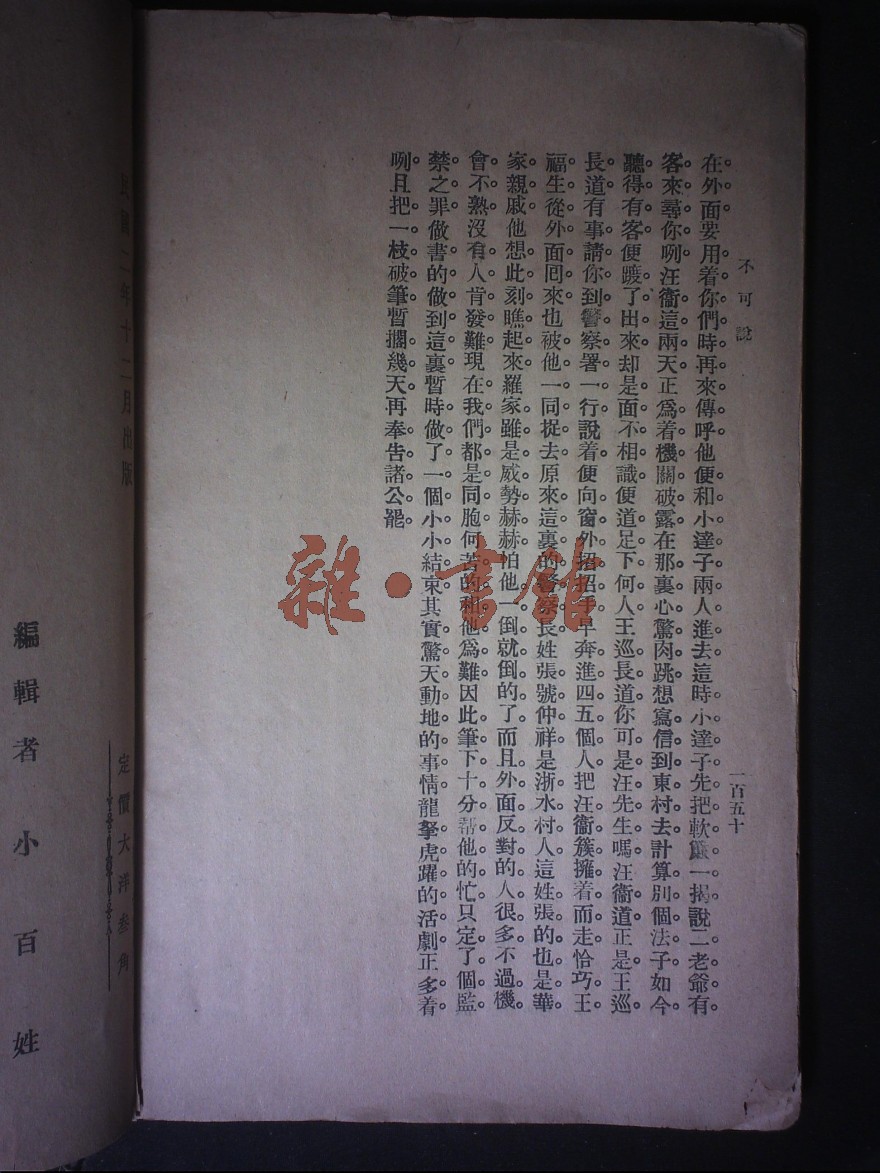 不可說
一百五十
在外面要用着你們時再來傳呼他便和小達子兩人進去這時小達子先把軟簾一揭說二老爺有
客來尋你咧汪衞這兩天正爲着機關破露在那裏心驚肉跳想寫信到東村去計算別個法子如今
聽得有客便踱了出來却是面不相識便道足下何人王巡長道你可是汪先生嗎汪衞道正是王巡
長道有事請你到警察署一行說着便向窗外招招手早奔進四五個人把汪衞簇擁着而走恰巧王
福生從外面囘來也被他一同捉去原來這裏的警察長姓張號仲祥是浙水村人這姓張的也是華
家親戚他想此刻瞧起來羅家雖是威勢赫赫怕他一倒就倒的了而且外面反對的人很多不過機
會不熟沒有人肯發難現在我們都是同胞何苦的和他爲難因此筆下十分帮他的忙只定了個監
禁之罪做書的做到這裏暫時做了一個小小結束其實驚天動地的事情龍拏虎躍的活劇正多着
咧且把一枝破筆暫擱幾天再奉告諸公罷
雜·書館
民國二年十二月出版
定價大洋叁角
編輯者小百姓